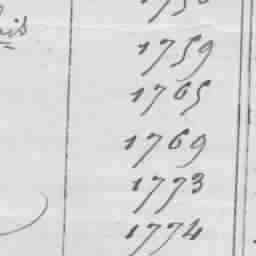 1759
1765
1769
1773
1774